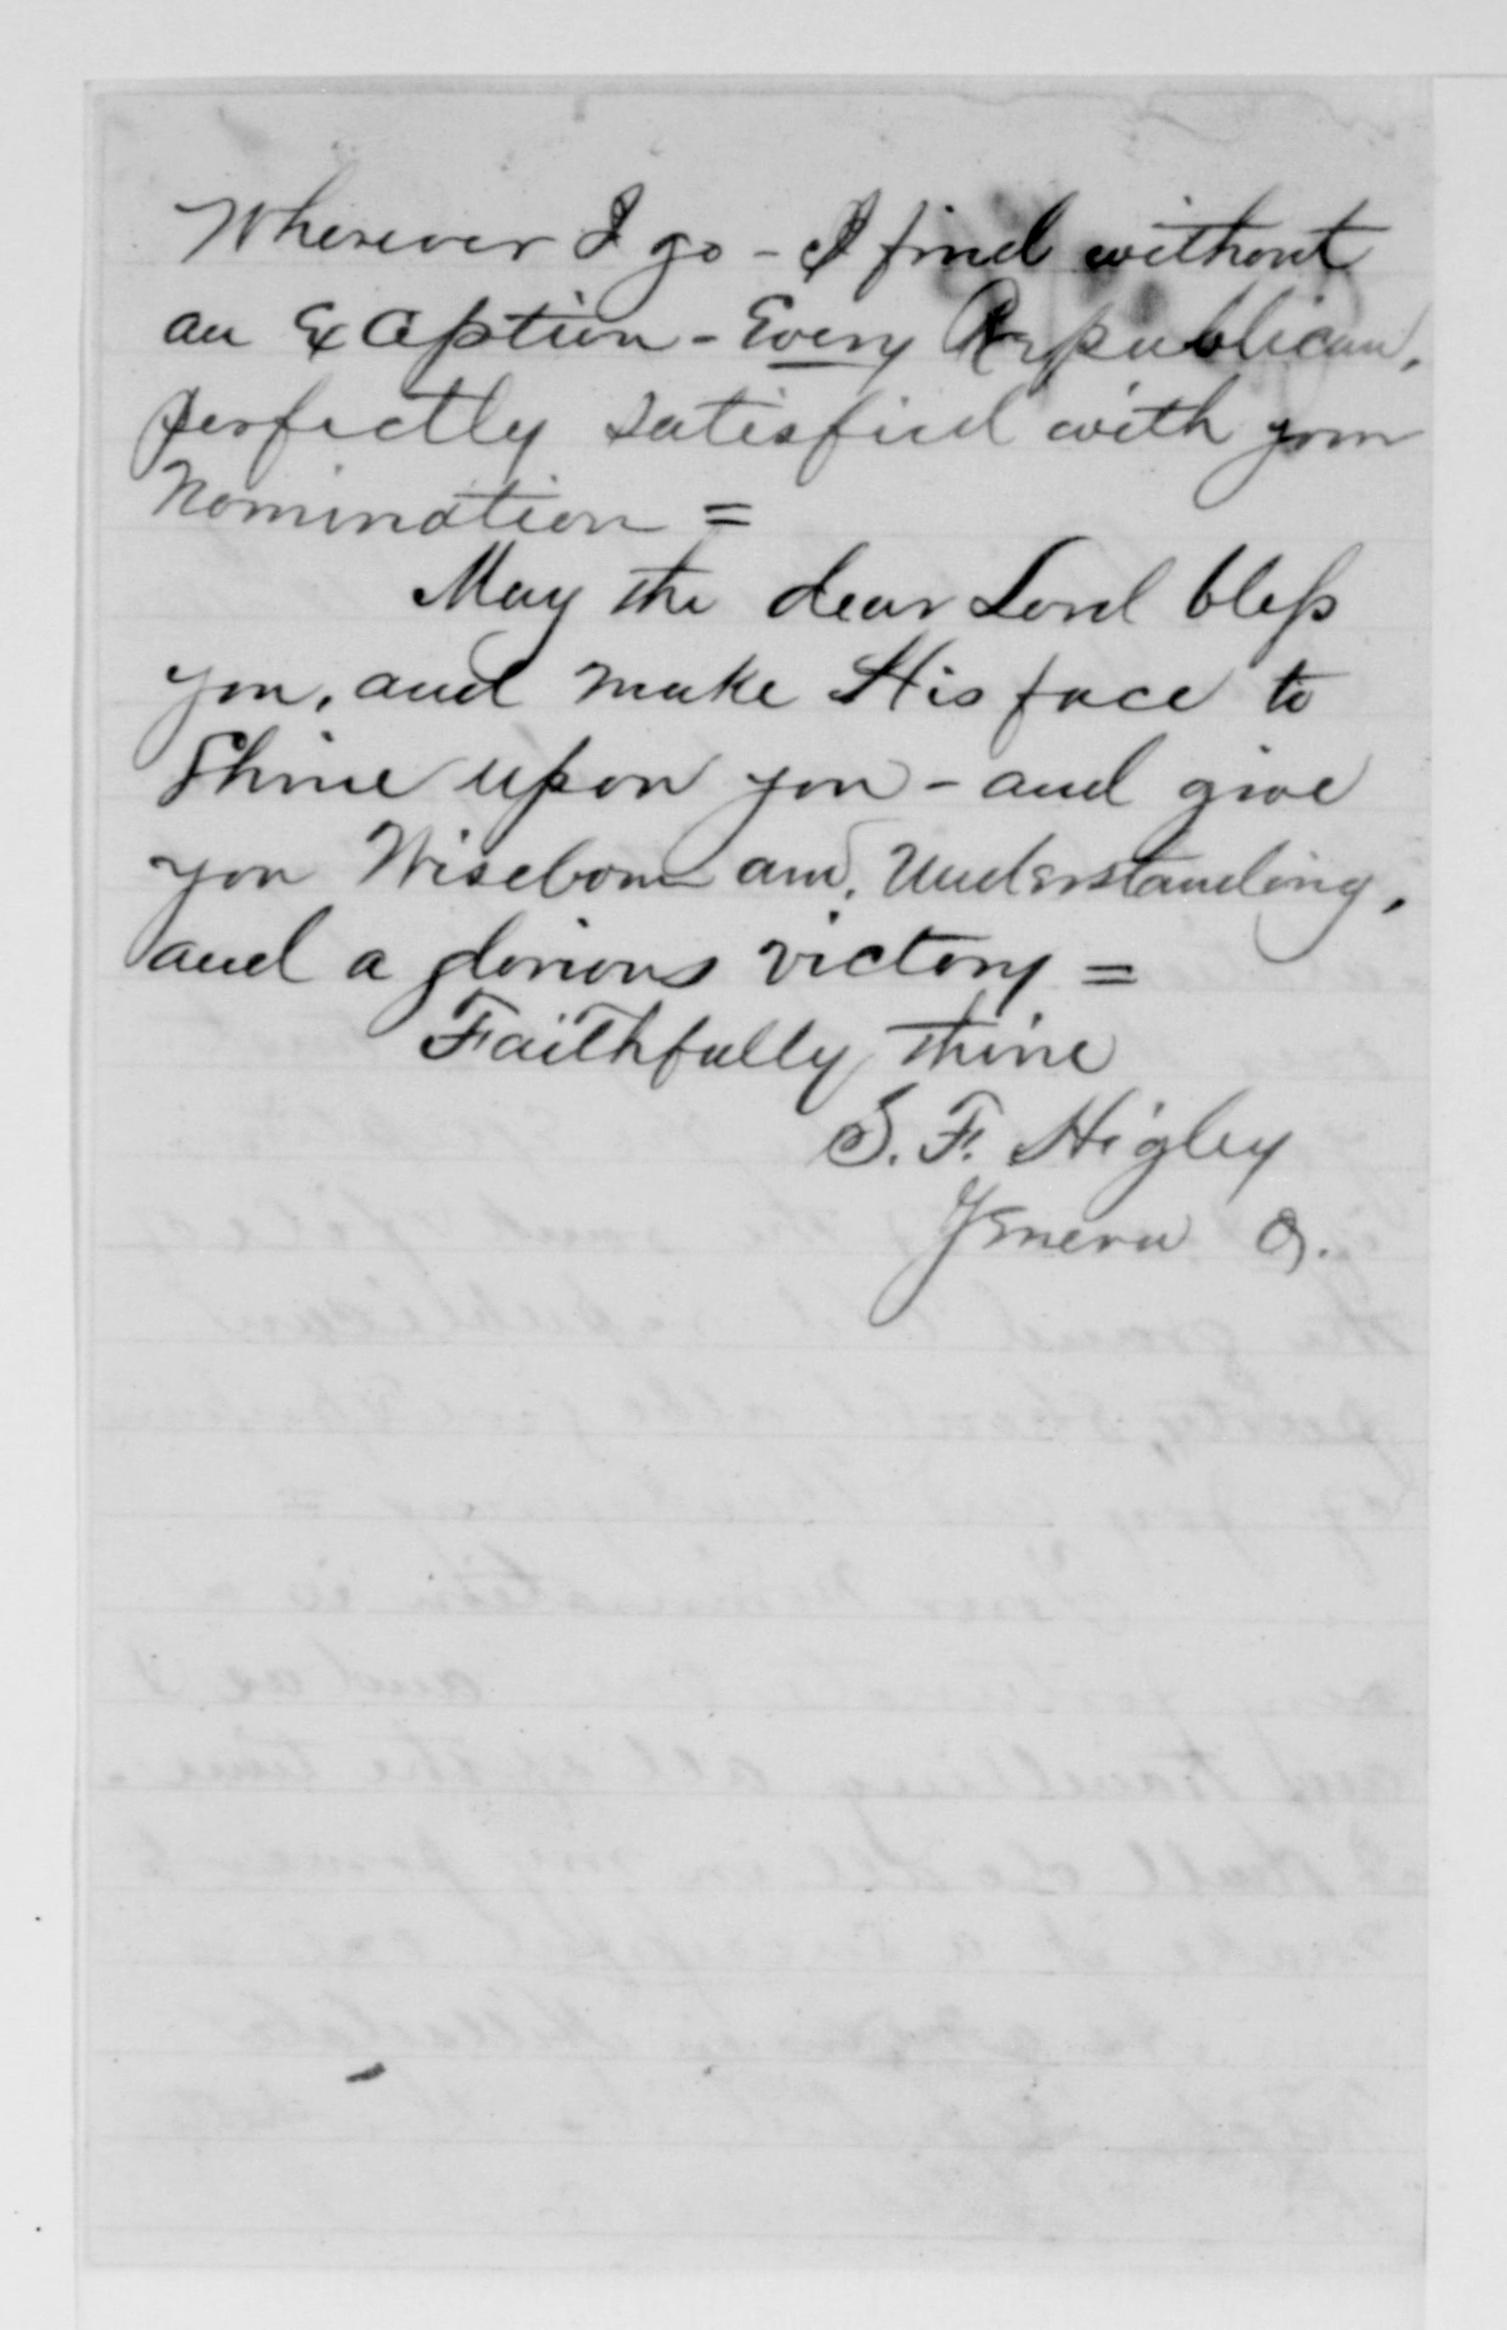 Wherever I go - I find without
an Exception - Every Republican,
perfectly satisfied with your
Nomination =
May the dear Lord bless
you, and make His face to
Shine upon you - and give
you Wisdom and Understanding,
and a glorious victory =
Faithfully thine
S. F. Higley
Geneva O.